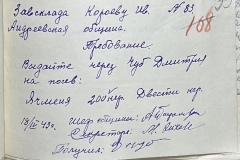 Завсклада Короеву Ив. № 83
Андреевская община. 168
Требование.
Выдайте через Чуб Дмитрия
на посев:
Ячменя 200 кгр. Двести кгр.
13/III 43г. Пред. общины:
Секретарь
Получил: Чуб